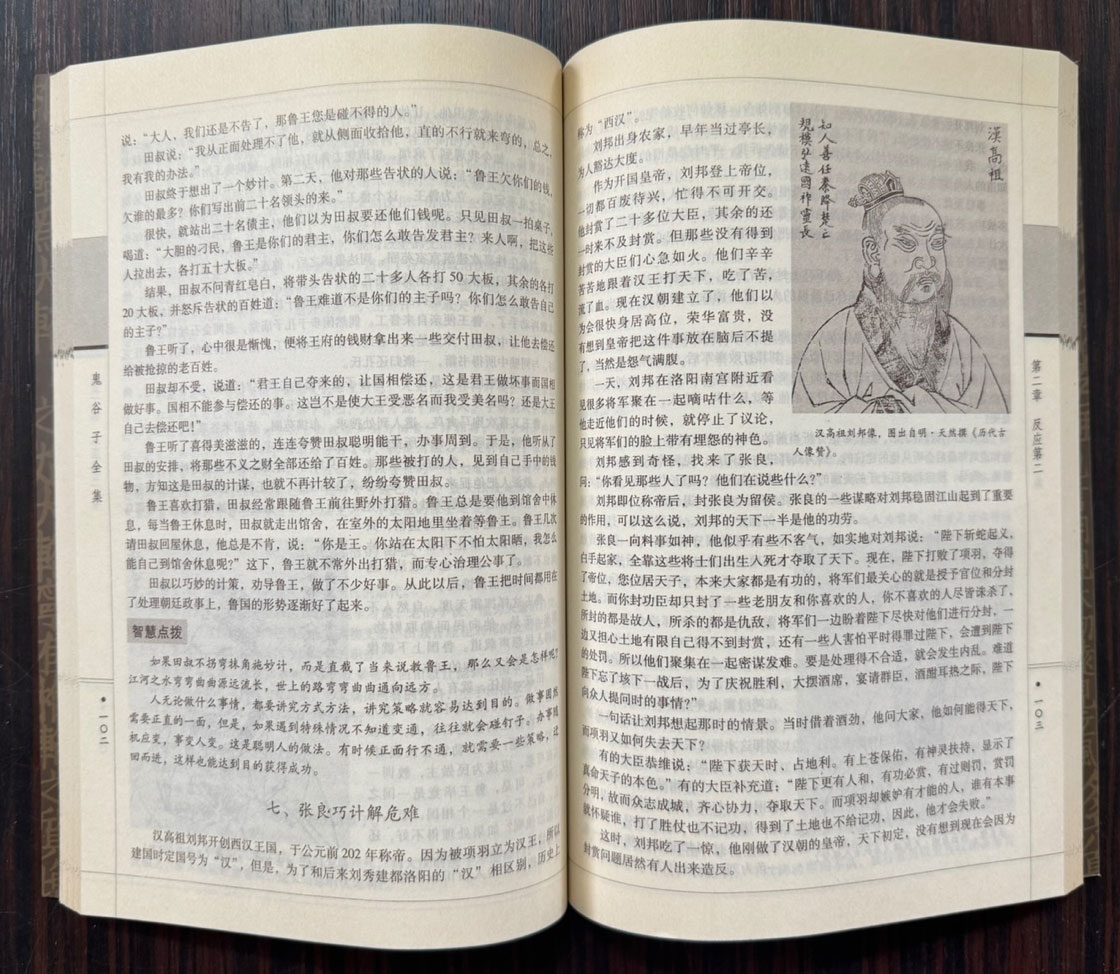 说：“大人，我们还是不告了，那鲁王您是碰不得的人。”
田叔说：“我从正面处理不了他，就从侧面收拾他，直的不行就来弯的，总之，
我有我的办法。”
田叔终于想出了一个妙计。第二天，他对那些告状的人说：“鲁王欠你们的钱，
欠谁的最多？你们写出前二十名领头的来。”
很快，就站出二十名债主，他们以为田叔要还他们钱呢。只见田叔一拍桌子，
喝道：“大胆的刁民，鲁王是你们的君主，你们怎么敢告发君主？来人啊，把这些
人拉出去，各打五十大板。”
结果，田叔不问青红皂白，将带头告状的二十多人各打 50 大板，其余的各打
20 大板，并怒斥告状的百姓道：“鲁王难道不是你们的主子吗？你们怎么敢告自己
的主子？”
鲁王听了，心中很是惭愧，便将王府的钱财拿出来一些交付田叔，让他去偿还
给被抢掠的老百姓。
田叔却不受，说道：“君王自己夺来的，让国相偿还，这是君王做坏事而国相
做好事。国相不能参与偿还的事。这岂不是使大王受恶名而我受美名吗？还是大王
自己去偿还吧！”
鲁王听了喜得美滋滋的，连连夸赞田叔聪明能干，办事周到。于是，他听从了
田叔的安排，将那些不义之财全部还给了百姓。那些被打的人，见到自己手中的钱
物，方知这是田叔的计谋，也就不再计较了，纷纷夸赞田叔。
鲁王喜欢打猎，田叔经常跟随鲁王前往野外打猎。鲁王总是要他到馆舍中休
息，每当鲁王休息时，田叔就走出馆舍，在室外的太阳地里坐着等鲁王。鲁王几次
请田叔回屋休息，他总是不肯，说：“你是王。你站在太阳下不怕太阳晒，我怎么
能自己到馆舍休息呢？”这下，鲁王就不常外出打猎，而专心治理公事了。
田叔以巧妙的计策，劝导鲁王，做了不少好事。从此以后，鲁王把时间都用在
了处理朝廷政事上，鲁国的形势逐渐好了起来。
智慧点拨
如果田叔不拐弯抹角施妙计，而是直截了当来说教鲁王，那么又会是怎样呢？
江河之水弯弯曲曲源远流长，世上的路弯弯曲曲通向远方。
人无论做什么事情，都要讲究方式方法，讲究策略就容易达到目的。做事固然
需要正直的一面，但是，如果遇到特殊情况不知道变通，往往就会碰钉子。办事随
机应变，事变人变。这是聪明人的做法。有时候正面行不通，就需要一些策略，迂
回而进，这样也能达到目的获得成功。
七、张良巧计解危难
汉高祖刘邦开创西汉王国，于公元前 202 年称帝。因为被项羽立为汉王，所以
建国时定国号为“汉”，但是，为了和后来刘秀建都洛阳的“汉”相区别，历史上
鬼谷子全集
一〇二
称为“西汉”。
刘邦出身农家，早年当过亭长，
为人豁达大度。
作为开国皇帝，刘邦登上帝位，
一切都百废待兴，忙得不可开交。
他封赏了二十多位大臣，其余的还
一时来不及封赏。但那些没有得到
封赏的大臣们心急如火。他们辛辛
苦苦地跟着汉王打天下，吃了苦，
流了血。现在汉朝建立了，他们以
为会很快身居高位，荣华富贵，没
有想到皇帝把这件事放在脑后不提
了，当然是怨气满腹。
一天，刘邦在洛阳南宫附近看
见很多将军聚在一起嘀咕什么，等
他走近他们的时候，就停止了议论，
只见将军们的脸上带有埋怨的神色。
刘邦感到奇怪，找来了张良，
问：“你看见那些人了吗？他们在说些什么？”
刘邦即位称帝后，封张良为留侯。张良的一些谋略对刘邦稳固江山起到了重要
的作用，可以这么说，刘邦的天下一半是他的功劳。
张良一向料事如神，他似乎有些不客气，如实地对刘邦说：“陛下斩蛇起义，
白手起家，全靠这些将士们出生入死才夺取了天下。现在，陛下打败了项羽，夺得
了帝位，您位居天子，本来大家都是有功的，将军们最关心的就是授予官位和分封
土地。而你封功臣却只封了一些老朋友和你喜欢的人，你不喜欢的人尽皆诛杀了，
所封的都是故人，所杀的都是仇敌，将军们一边盼着陛下尽快对他们进行分封，一
边又担心土地有限自己得不到封赏，还有一些人害怕平时得罪过陛下，会遭到陛下
的处罚。所以他们聚集在一起密谋发难。要是处理得不合适，就会发生内乱。难道
陛下忘了垓下一战后，为了庆祝胜利，大摆酒席，宴请群臣，酒酣耳热之际，陛下
向众人提问时的事情？”
一句话让刘邦想起那时的情景。当时借着酒劲，他问大家，他如何能得天下，
而项羽又如何失去天下？
有的大臣恭维说：“陛下获天时、占地利。有上苍保佑，有神灵扶持，显示了
真命天子的本色。”有的大臣补充道：“陛下更有人和，有功必赏，有过则罚，赏罚
分明，故而众志成城，齐心协力，夺取天下。而项羽却嫉妒有才能的人，谁有本事
就怀疑谁，打了胜仗也不记功，得到了土地也不给记功，因此，他才会失败。”
这时，刘邦吃了一惊，他刚做了汉朝的皇帝，天下初定，没有想到现在会因为
封赏问题居然有人出来造反。
漢高祖
知人善任秦降楚亡
規模弘遠國祚靈長
汉高祖刘邦像，图出自明·天然撰《历代古
人像赞》。
第二章 反应第二
一〇三